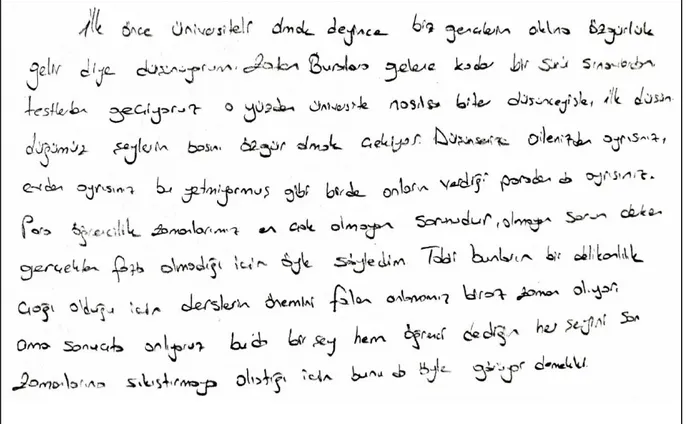 İlk önce üniversiteli olmak deyince biz gençlerin aklına özgürlük
gelir diye düşünüyorum. Zaten Buralara gelene kadar bir sürü sınavlardan
testlerden geçiyoruz o yüzden üniversite nasılsa biter düşüncesiyle, ilk düşün
düğümüz şeylerin başını özgür olmak çekiyor. Düşünsenize ailenizden ayrısınız,
evden ayrısınız bu yetmiyormuş gibi birde onların verdiği paradan da ayrısınız.
Para öğrencilik zamanlarımız en çok olmayan sorunudur, olmayan sorun derken
gerçekten fazla olmadığı için öyle söyledim Tabi bunların bir delikanlılık
çağı olduğu için derslerin önemini falan anlamamız biraz zaman alıyor.
ama sonuçta anlıyoruz buda bir şey hem öğrenci dediğin her şeyini son
zamanlarına sıkıştırmaya alıştığı için bunu da öyle görüyor demekki.